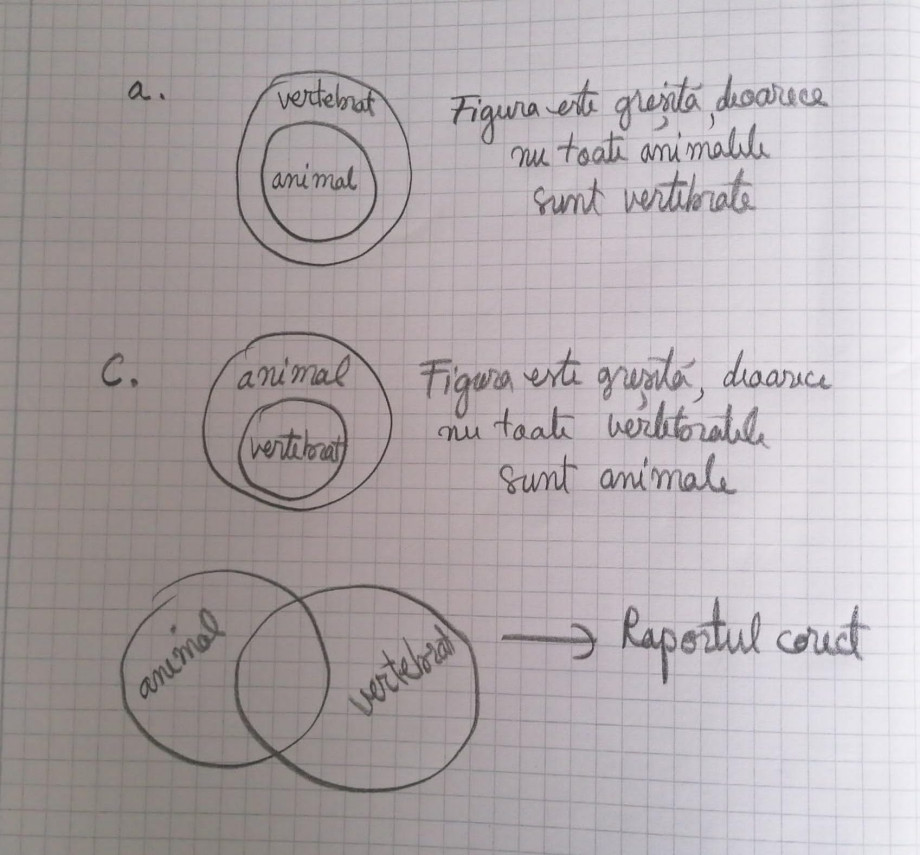 a.
vertebrat
animal
Figura este greșită, deoarece
nu toate animalele
sunt vertebrate
C.
animal
vertebrat
Figura este greșită, deoarece
nu toate
sunt animale
animal
vertebrat
→ Raportul corect